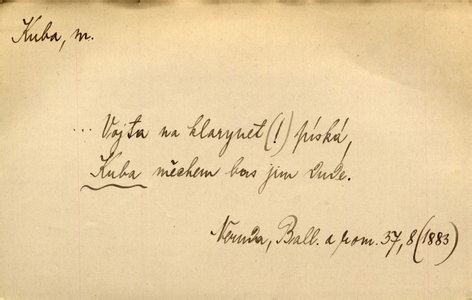 Kuba, m.
... Vojta na klarynet (!) píská,
Kuba měchem bas jim dude.
Neruda, Ball. a rom. 37, 8 (1883)